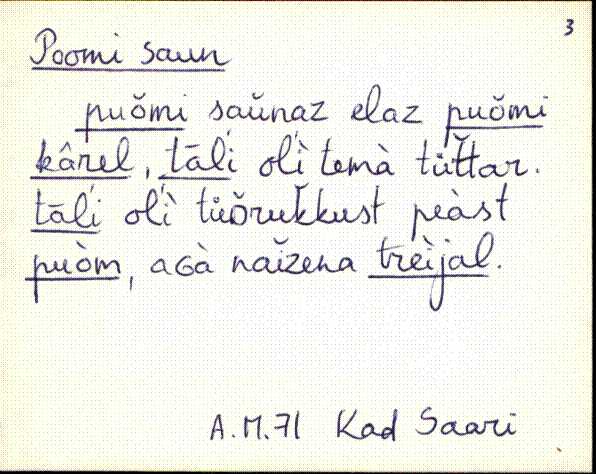 3
Poomi saun
puŏmi saŭnaz elaz puŏmi
kârel, tāĺi oĺì temà tüt̆tar.
tāĺi oĺì tüŏruk̆kust peàst
puòm, aGà naĭzena trèijal.
A.M.71 Kad Saari